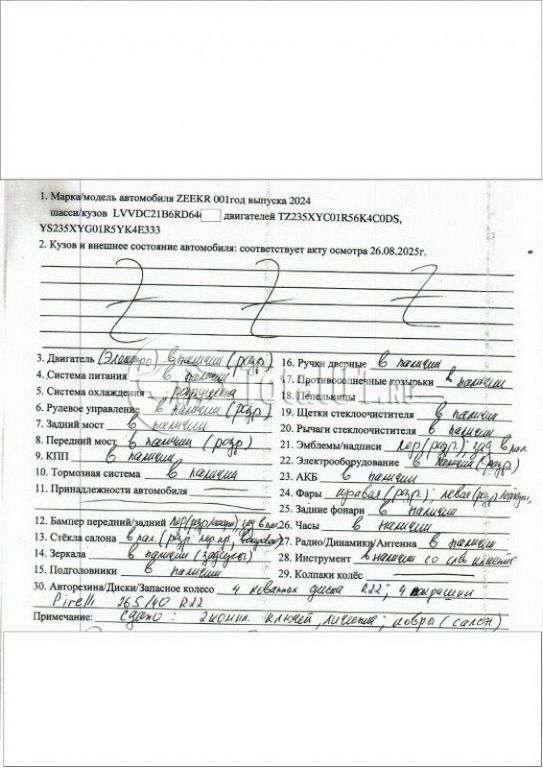 1. Марка/модель автомобиля ZEEKR 001год выпуска 2024
шасси/кузов LVVDC21B6RD64 двигателей TZ235XYC01R56K4C0DS,
YS235XYG01R5YK4E333
2. Кузов и внешнее состояние автомобиля: соответствует акту осмотра 26.08.2025г.
3. Двигатель (Электро) в наличии (разр)
4. Система питания в наличии
5. Система охлаждения разрушена
6. Рулевое управление в наличии (разр)
7. Задний мост в наличии
8. Передний мост в наличии (разр)
9. КПП в наличии
10. Тормозная система в наличии
11. Принадлежности автомобиля
12. Бампер передний/задний
13. Стёкла салона в нал. (разр.
14. Зеркала в наличии
15. Подголовники в наличии
16. Ручки дверные в наличии
17. Противосолнечные козырьки в наличии
18. Пепельницы
19. Щетки стеклоочистителя в наличии
20. Рычаги стеклоочистителя в наличии
21. Эмблемы/надписи пер(разр); зад в нал.
22. Электрооборудование в наличии (разр)
23. АКБ в наличии
24. Фары правая (разр.); левая
25. Задние фонари в наличии
26. Часы в наличии
27. Радио/Динамики/Антенна в наличии
28. Инструмент в наличии со слов клиента
29. Колпаки колёс
30. Авторезина/Диски/Запасное колесо 4 кованных диска R22; 4 покрышки
Pirelli 265/40 R22
Примечание: сдано: 2 компл. ключей, ; ковры (салон)